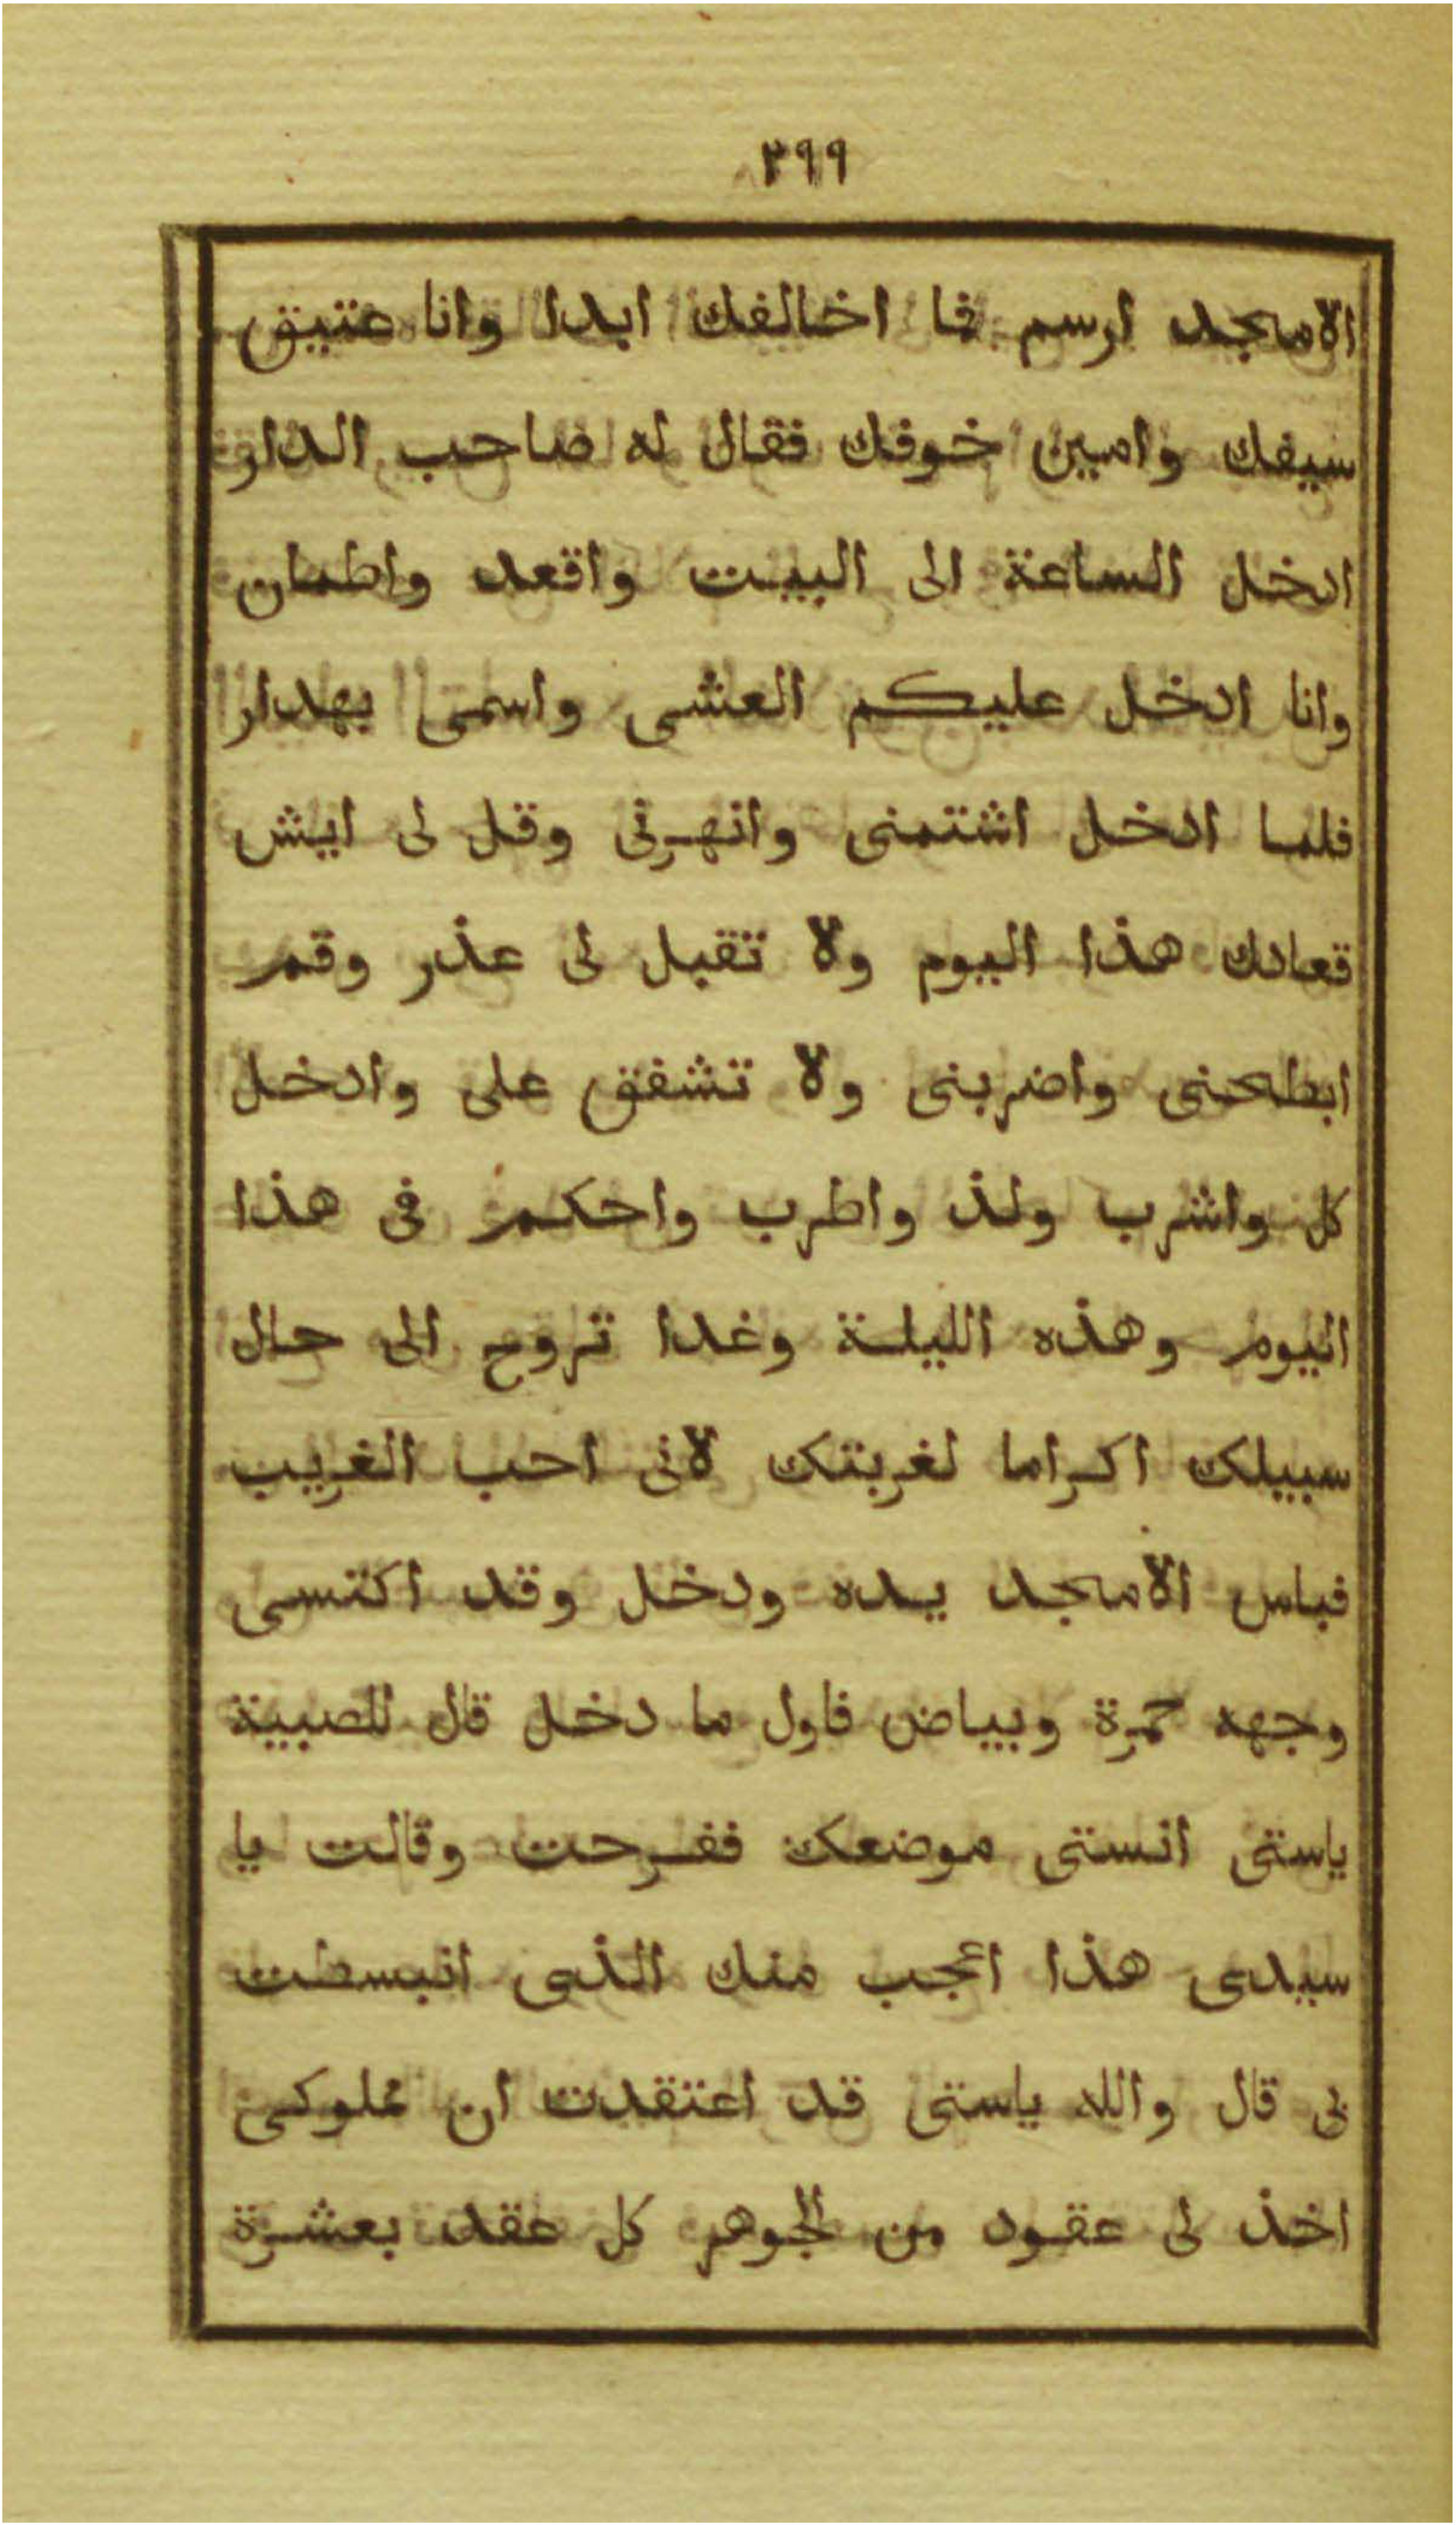 ٣٩٩
الامجد ارسم فما اخالفك ابدا وانا عتيق
سيفك وامين خوفك فقال له صاحب الدار
ادخل الساعة الى البيت واقعد واطمان
وانا ادخل عليكم العشى واسمى بهدار
فلما ادخل اشتمنى وانهرنى وقل لى ايش
قعادك هذا اليوم ولا تقبل لى عذر وقم
ابطحنى واضربنى ولا تشفق على وادخل
كل واشرب ولذ واطرب واحكم فى هذا
اليوم وهذه الليلة وغدا تروح الى حال
سبيلك اكراما لغربتك لانى احب الغريب
فباس الامجد يده ودخل وقد اكتسى
وجهه حمرة وبياض فاول ما دخل قال للصبية
ياستى انستى موضعك ففرحت وقالت يا
سيدى هذا اعجب منك الذى انبسطت
بى قال والله ياستى قد اعتقدت ان مملوكى
اخذ لى عقود من الجوهر كل عقد بعشرة